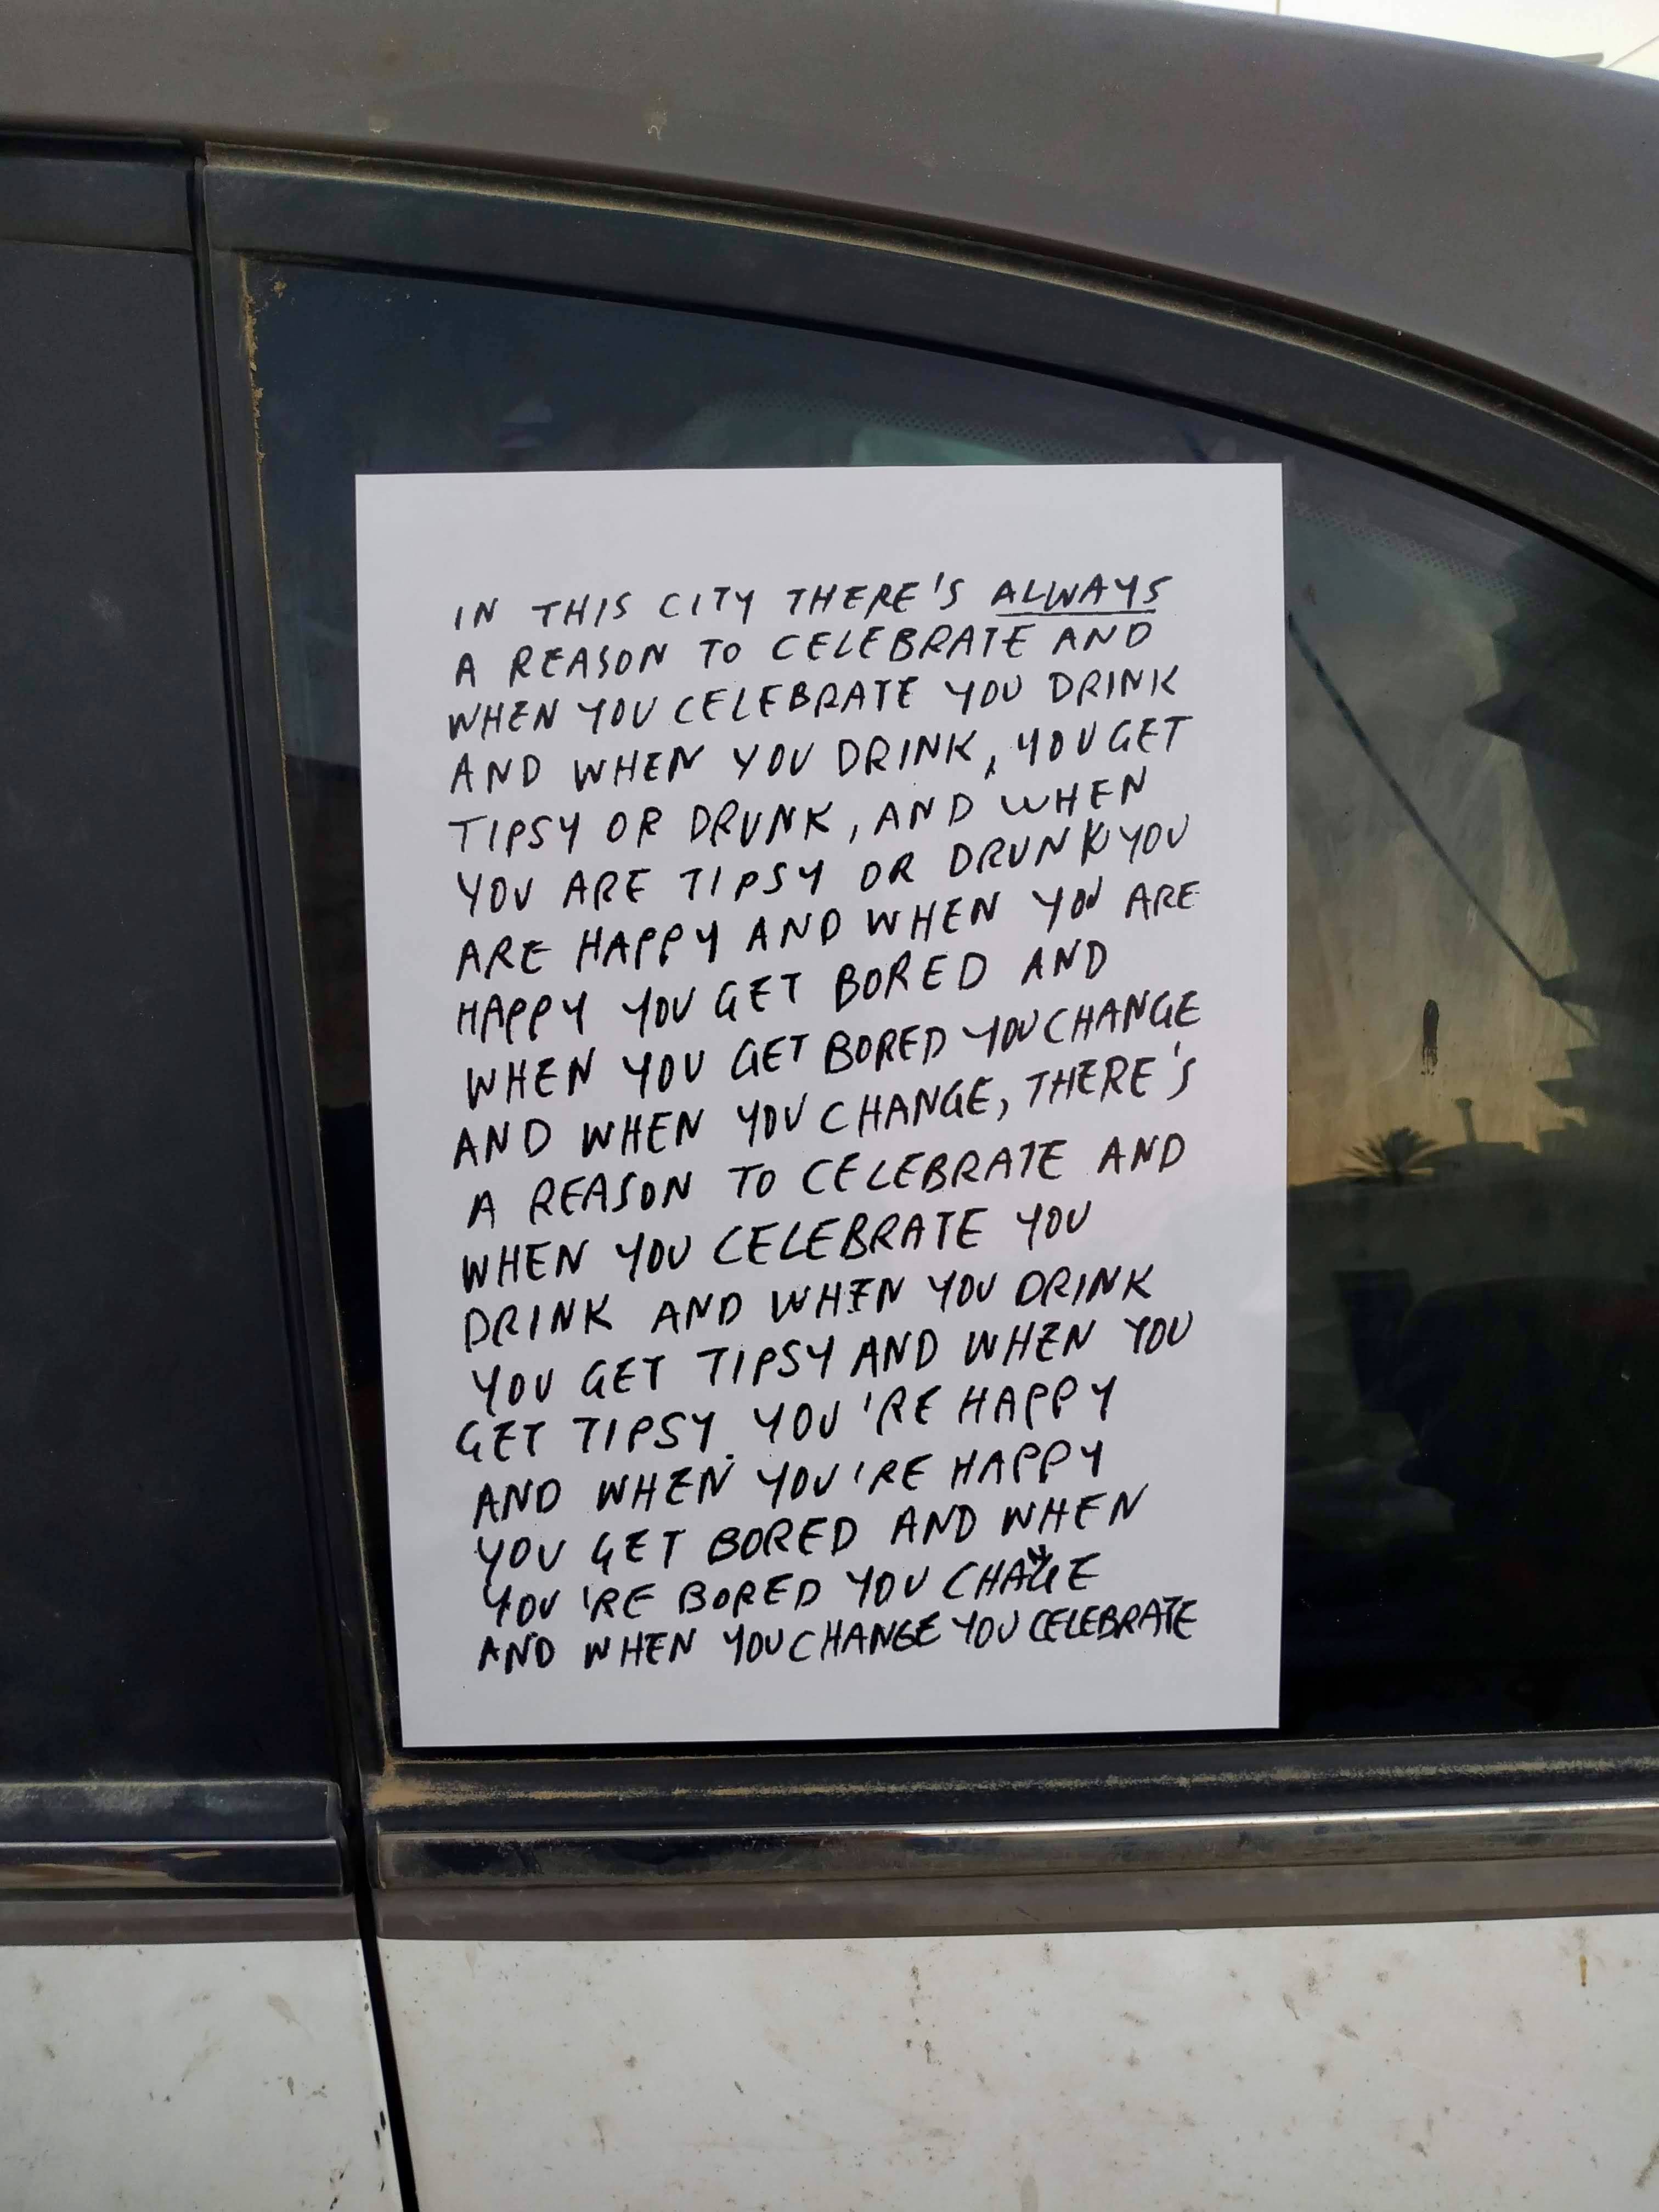 IN THIS CITY THERE'S ALWAYS
A REASON TO CELEBRATE AND
WHEN YOU CELEBRATE YOU DRINK
AND WHEN YOU DRINK, YOU GET
TIPSY OR DRUNK, AND WHEN
YOU ARE TIPSY OR DRUNK YOU
ARE HAPPY AND WHEN YOU ARE
HAPPY YOU GET BORED AND
WHEN YOU GET BORED YOU CHANGE
AND WHEN YOU CHANGE, THERE'S
A REASON TO CELEBRATE AND
WHEN YOU CELEBRATE YOU
DRINK AND WHEN YOU DRINK
YOU GET TIPSY AND WHEN YOU
GET TIPSY. YOU'RE HAPPY
AND WHEN YOU'RE HAPPY
YOU GET BORED AND WHEN
YOU'RE BORED YOU CHANGE
AND WHEN YOU CHANGE YOU CELEBRATE